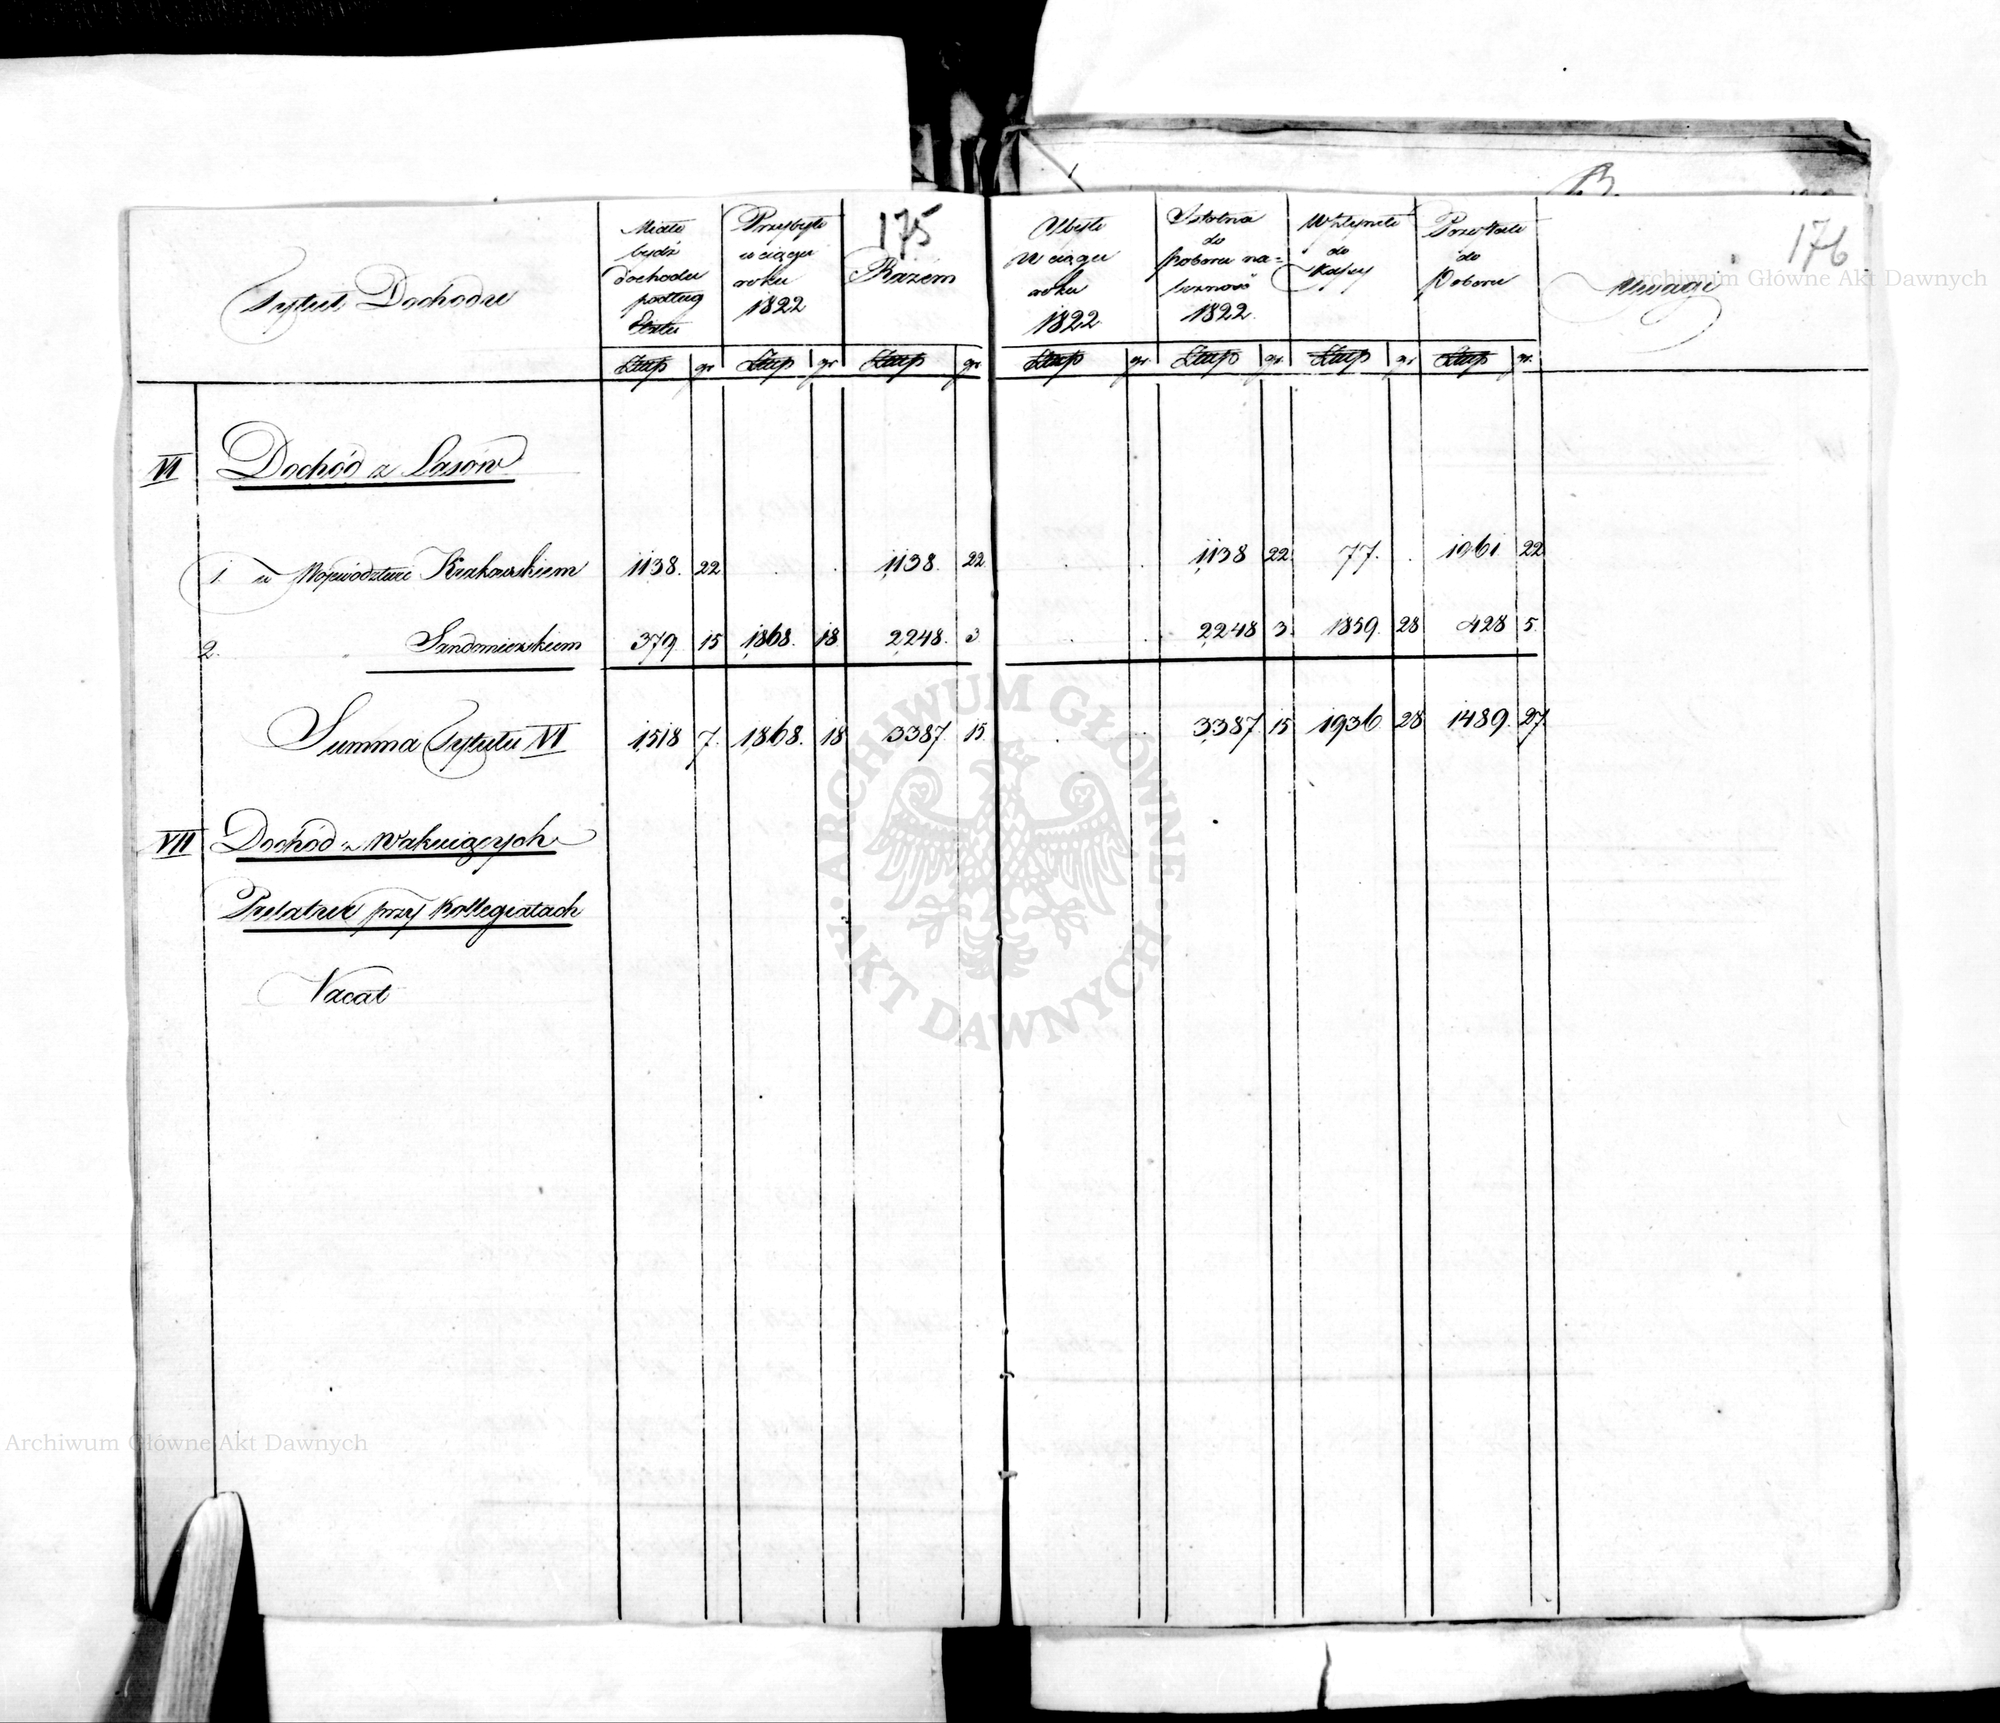 175
176
Tytuł Dochodu
Miało
bydź
dochodu
podług
Etatu
Przybyło
w ciągu
roku
1822
Razem
Ubyło
w ciągu
roku
1822
Istotna
do
poboru na=
leżność
1822
Wpłynęło
do
Kassy
Pozostało
do
Poboru
Uwagi
Złłp gr Złłp gr Złłp gr Złłp gr Złłp gr Złłp gr Złłp gr
VI Dochód z Lasów
1. w Województwie Krakowskiem 1138. 22 . . 1138. 22 . . 1138 22 77. . 1061 22
2. Sandomierskiem 379 15 1868. 18 2248. 3 . . 2248 3. 1859. 28 428 5.
Summa Tytułu VI 1518 7. 1868. 18 3387. 15 . . 3387. 15 1936 28 1489. 27
VII Dochód z Wakuiących
Prelatur przy Kollegiatach
Vacat
ARCHIWUM GŁÓWNE
AKT DAWNYCH
Archiwum Główne Akt Dawnych
Archiwum Główne Akt Dawnych